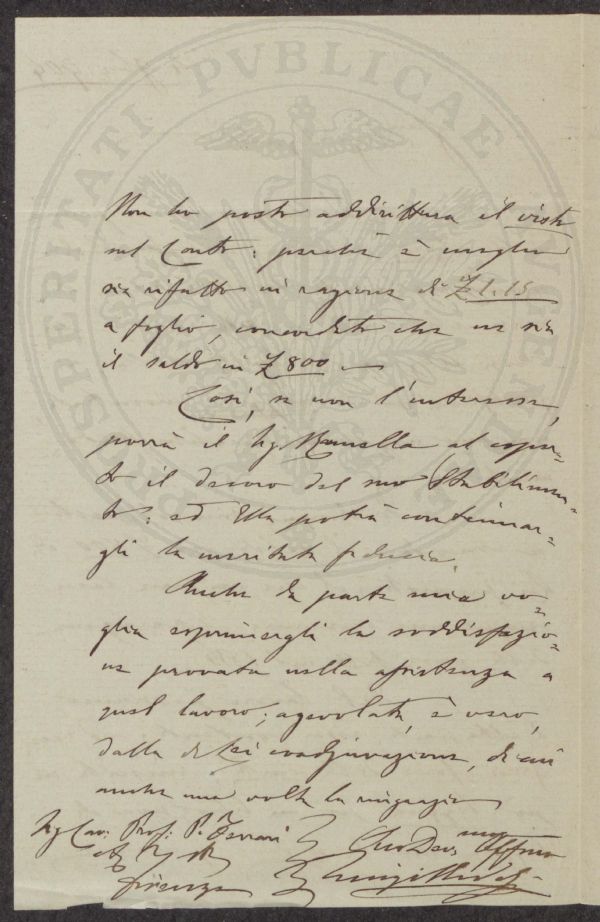 Non ho posto addirittura il visto
sul Conto: perchè è meglio
sia rifatto in ragione di £ 1.15
a foglio, concordato che ne sia
il saldo in £ 800 —
Così, se non l'interesse,
potrà il Sig. Manella al coper-
to il decoro del suo Stabilimen-
to: ed Ella potrà continuar-
gli la meritata fiducia.
Anche da parte mia vo-
glia esprimergli la soddisfazio-
ne provata nella assistenza a
quel lavoro; agevolata, è vero,
dalla di Lei coadjuvazione, di cui
anche una volta la ringrazio
Sig. Cav: Prof: P. Ferrari
Firenze
Suo Dev. mo Affmo
PROSPERITATI PVBLICAE